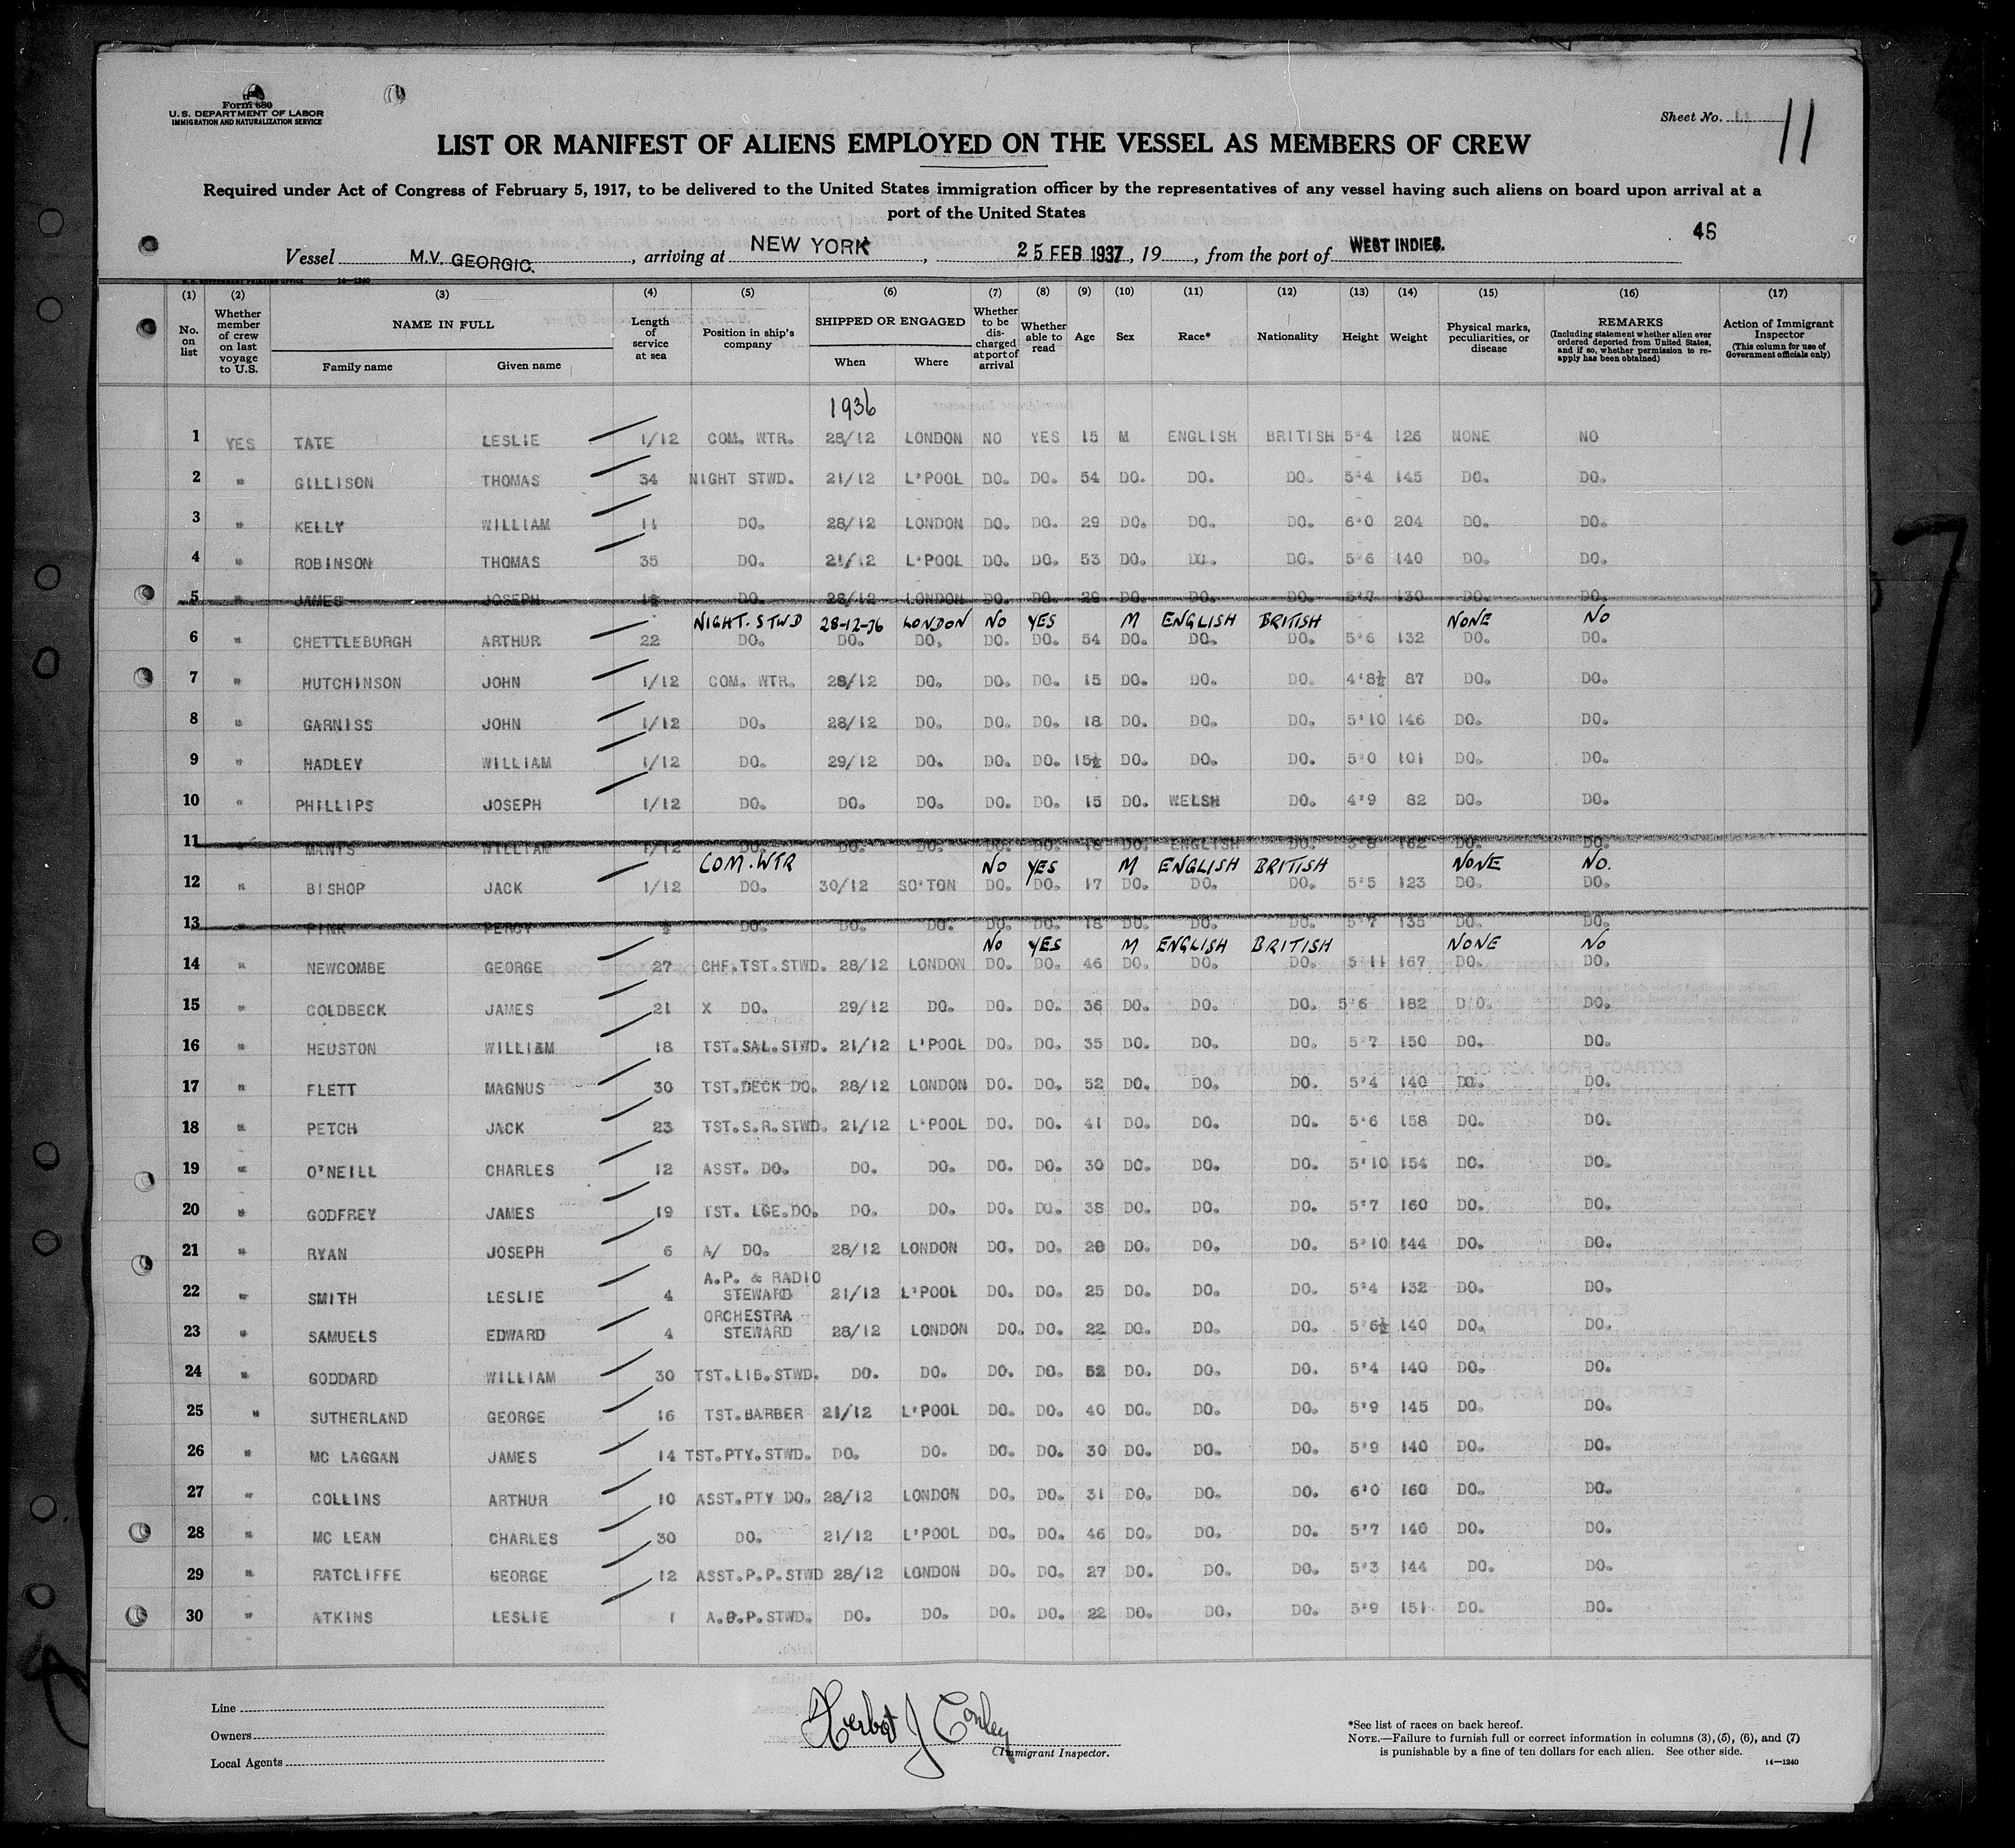 Form 680
U. S. DEPARTMENT OF LABOR
IMMIGRATION AND NATURALIZATION SERVICE
Sheet No. 11
11
LIST OR MANIFEST OF ALIENS EMPLOYED ON THE VESSEL AS MEMBERS OF CREW
Required under Act of Congress of February 5, 1917, to be delivered to the United States immigration officer by the representatives of any vessel having such aliens on board upon arrival at a
port of the United States
46
Vessel M.V. GEORGIC. , arriving at NEW YORK , 25 FEB 1937 , 19 , from the port of WEST INDIES.
U. S. GOVERNMENT PRINTING OFFICE 14—1240
(1) (2) (3) (4) (5) (6) (7) (8) (9) (10) (11) (12) (13) (14) (15) (16) (17)
No. on list Whether member of crew on last voyage to U.S. NAME IN FULL Family name Given name Length of service at sea Position in ship's company SHIPPED OR ENGAGED When Where Whether to be discharged at port of arrival Whether able to read Age Sex Race* Nationality Height Weight Physical marks, peculiarities, or disease REMARKS (Including statement whether alien ever ordered deported from United States, and if so, whether permission to reapply has been obtained) Action of Immigrant Inspector (This column for use of Government officials only)
1936
1 YES TATE LESLIE 1/12 COM. WTR. 28/12 LONDON NO YES 15 M ENGLISH BRITISH 5'4 126 NONE NO
2 " GILLISON THOMAS 34 NIGHT STWD. 21/12 L'POOL DO. DO. 54 DO. DO. DO. 5'4 145 DO. DO.
3 " KELLY WILLIAM 11 DO. 28/12 LONDON DO. DO. 29 DO. DO. DO. 6'0 204 DO. DO.
4 " ROBINSON THOMAS 35 DO. 21/12 L'POOL DO. DO. 53 DO. DO. DO. 5'6 140 DO. DO.
5 " JAMES JOSEPH DO. 28/12 LONDON DO. DO. 29 DO. DO. DO. 5'7 130 DO. DO.
NIGHT. STWD 28-12-36 LONDON NO YES M ENGLISH BRITISH NONE NO
6 " CHETTLEBURGH ARTHUR 22 DO. DO. DO. DO. DO. 54 DO. DO. DO. 5'6 132 DO. DO.
7 " HUTCHINSON JOHN 1/12 COM. WTR. 28/12 DO. DO. DO. 15 DO. DO. DO. 4'8½ 87 DO. DO.
8 " GARNISS JOHN 1/12 DO. 28/12 DO. DO. DO. 18 DO. DO. DO. 5'10 146 DO. DO.
9 " HADLEY WILLIAM 1/12 DO. 29/12 DO. DO. DO. 15½ DO. DO. DO. 5'0 101 DO. DO.
10 " PHILLIPS JOSEPH 1/12 DO. DO. DO. DO. DO. 15 DO. WELSH DO. 4'9 82 DO. DO.
11 " MANTS WILLIAM 1/12 DO. DO. DO. DO. DO. 18 DO. ENGLISH DO. 5'8 162 DO. DO.
COM. WTR NO YES M ENGLISH BRITISH NONE NO.
12 " BISHOP JACK 1/12 DO. 30/12 SO'TON DO. DO. 17 DO. DO. DO. 5'5 123 DO. DO.
13 " PINK PERCY DO. DO. DO. DO. DO. 18 DO. DO. DO. 5'7 135 DO. DO.
NO YES M ENGLISH BRITISH NONE NO
14 " NEWCOMBE GEORGE 27 CHF.TST.STWD. 28/12 LONDON DO. DO. 46 DO. DO. DO. 5'11 167 DO. DO.
15 " COLDBECK JAMES 21 X DO. 29/12 DO. DO. DO. 36 DO. DO. DO. 5'6 182 D.O. DO.
16 " HEUSTON WILLIAM 18 TST.SAL.STWD. 21/12 L'POOL DO. DO. 35 DO. DO. DO. 5'7 150 DO. DO.
17 " FLETT MAGNUS 30 TST.DECK DO. 28/12 LONDON DO. DO. 52 DO. DO. DO. 5'4 140 DO. DO.
18 " PETCH JACK 23 TST.S.R.STWD. 21/12 L'POOL DO. DO. 41 DO. DO. DO. 5'6 158 DO. DO.
19 " O'NEILL CHARLES 12 ASST. DO. DO. DO. DO. DO. 30 DO. DO. DO. 5'10 154 DO. DO.
20 " GODFREY JAMES 19 TST. LGE.DO. DO. DO. DO. DO. 38 DO. DO. DO. 5'7 160 DO. DO.
21 " RYAN JOSEPH 6 A/ DO. 28/12 LONDON DO. DO. DO. DO. DO. 5'10 144 DO. DO.
22 " SMITH LESLIE 4 A.P. & RADIO STEWARD 21/12 L'POOL DO. DO. 25 DO. DO. DO. 5'4 132 DO. DO.
23 " SAMUELS EDWARD 4 ORCHESTRA STEWARD 28/12 LONDON DO. DO. 22 DO. DO. DO. 5'6½ 140 DO. DO.
24 " GODDARD WILLIAM 30 TST.LIB.STWD. DO. DO. DO. DO. 52 DO. DO. DO. 5'4 140 DO. DO.
25 " SUTHERLAND GEORGE 16 TST.BARBER 21/12 L'POOL DO. DO. 40 DO. DO. DO. 5'9 145 DO. DO.
26 " MC LAGGAN JAMES 14 TST.PTY.STWD. DO. DO. DO. DO. 30 DO. DO. DO. 5'9 140 DO. DO.
27 " COLLINS ARTHUR 10 ASST.PTY DO. 28/12 LONDON DO. DO. 31 DO. DO. DO. 6'0 160 DO. DO.
28 " MC LEAN CHARLES 30 DO. 21/12 L'POOL DO. DO. 46 DO. DO. DO. 5'7 140 DO. DO.
29 " RATCLIFFE GEORGE 12 ASST.P.P.STWD 28/12 LONDON DO. DO. 27 DO. DO. DO. 5'3 144 DO. DO.
30 " ATKINS LESLIE 1 DO. DO. DO. DO. 22 DO. DO. DO. 5'9 151 DO. DO.
Line
Owners
Local Agents
Herbert J Conley
Immigrant Inspector.
*See list of races on back hereof.
NOTE.—Failure to furnish full or correct information in columns (3), (5), (6), and (7)
is punishable by a fine of ten dollars for each alien. See other side.
14—1240
7